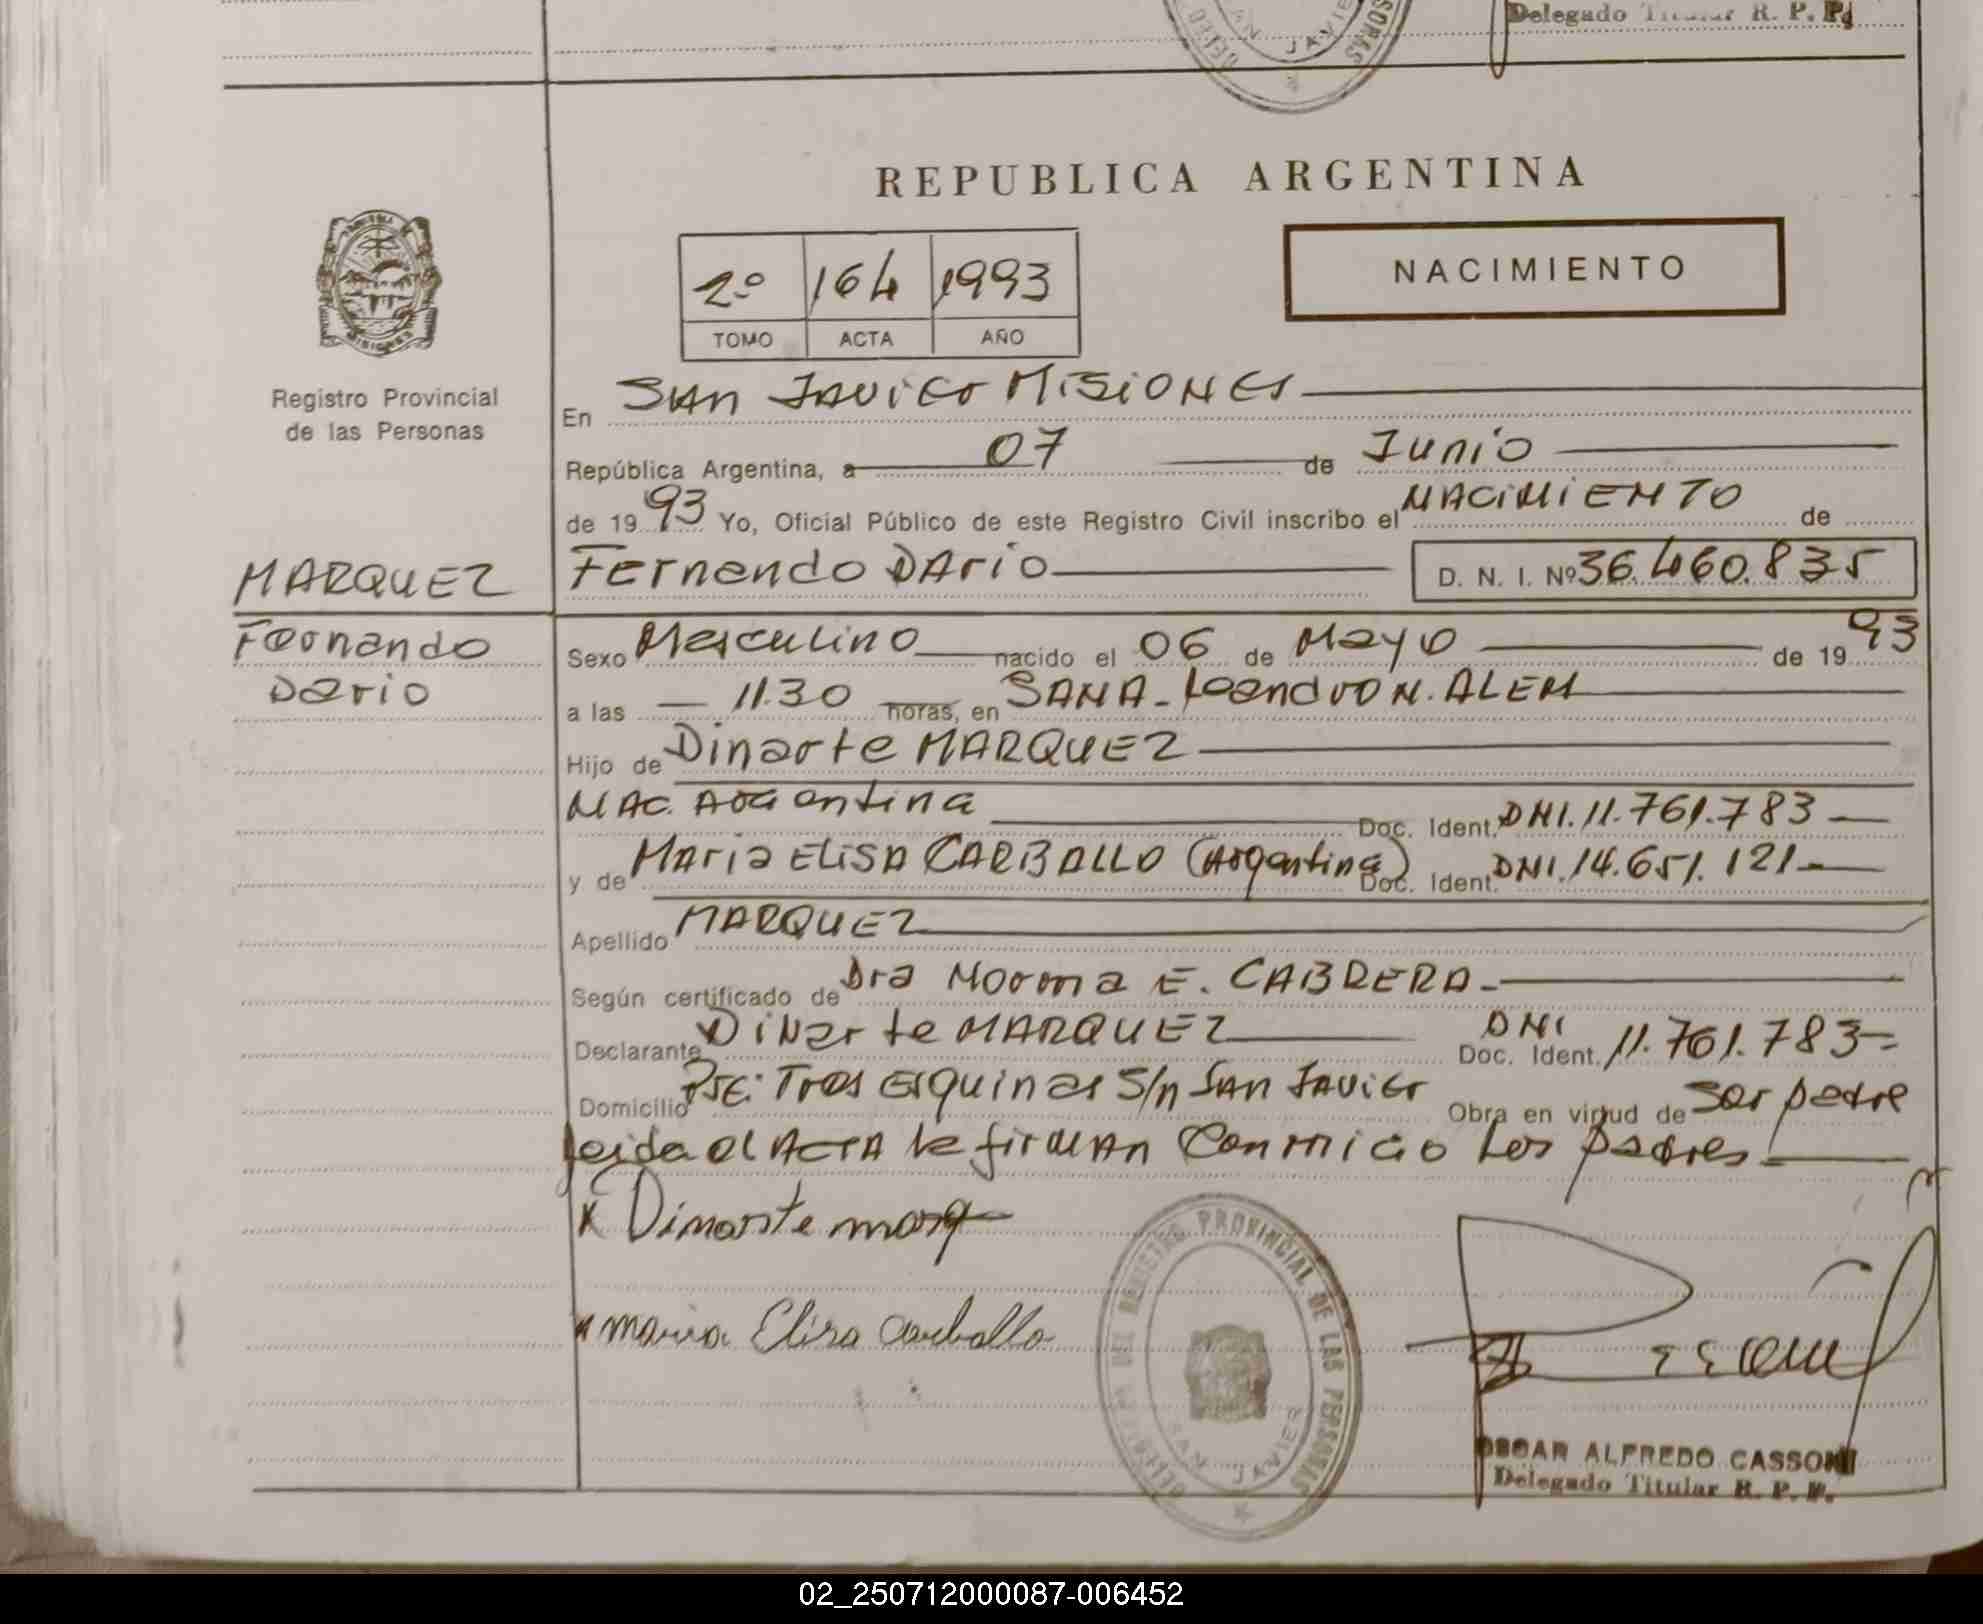 Delegado Titular R. P. P.
SAN JAVIER
REPUBLICA ARGENTINA
2º 164 1993
TOMO ACTA AÑO
NACIMIENTO
MISIONES
Registro Provincial
de las Personas
En SAN JAVIER MISIONES
República Argentina, a 07 de Junio
de 1993 Yo, Oficial Público de este Registro Civil inscribo el NACIMIENTO de
MARQUEZ
Fernando DARIO D. N. I. Nº 36.460.835
Fernando
Dario
Sexo Masculino nacido el 06 de Mayo de 1993
a las — 11.30 horas, en SAMA - Leandro N. ALEM
Hijo de Dinarte MARQUEZ
NAC. Argentina Doc. Ident. DNI. 11.761.783 —
y de Maria ELISA CARBALLO (Argentina) Doc. Ident. DNI. 14.651.121 —
Apellido MARQUEZ
Según certificado de Dra Norma E. CABRERA.-
Declarante Dinarte MARQUEZ Doc. Ident. DNI 11.761.783 =
Domicilio Pje: Tres Esquinas S/n SAN JAVIER Obra en virtud de ser padre
leida el ACTA la firman Conmigo los padres
x Dinarte marq
x maria Elisa Carballo
DEL REGISTRO PROVINCIAL DE LAS PERSONAS
SAN JAVIER
OSCAR ALFREDO CASSONI
Delegado Titular R. P. P.
02_250712000087-006452